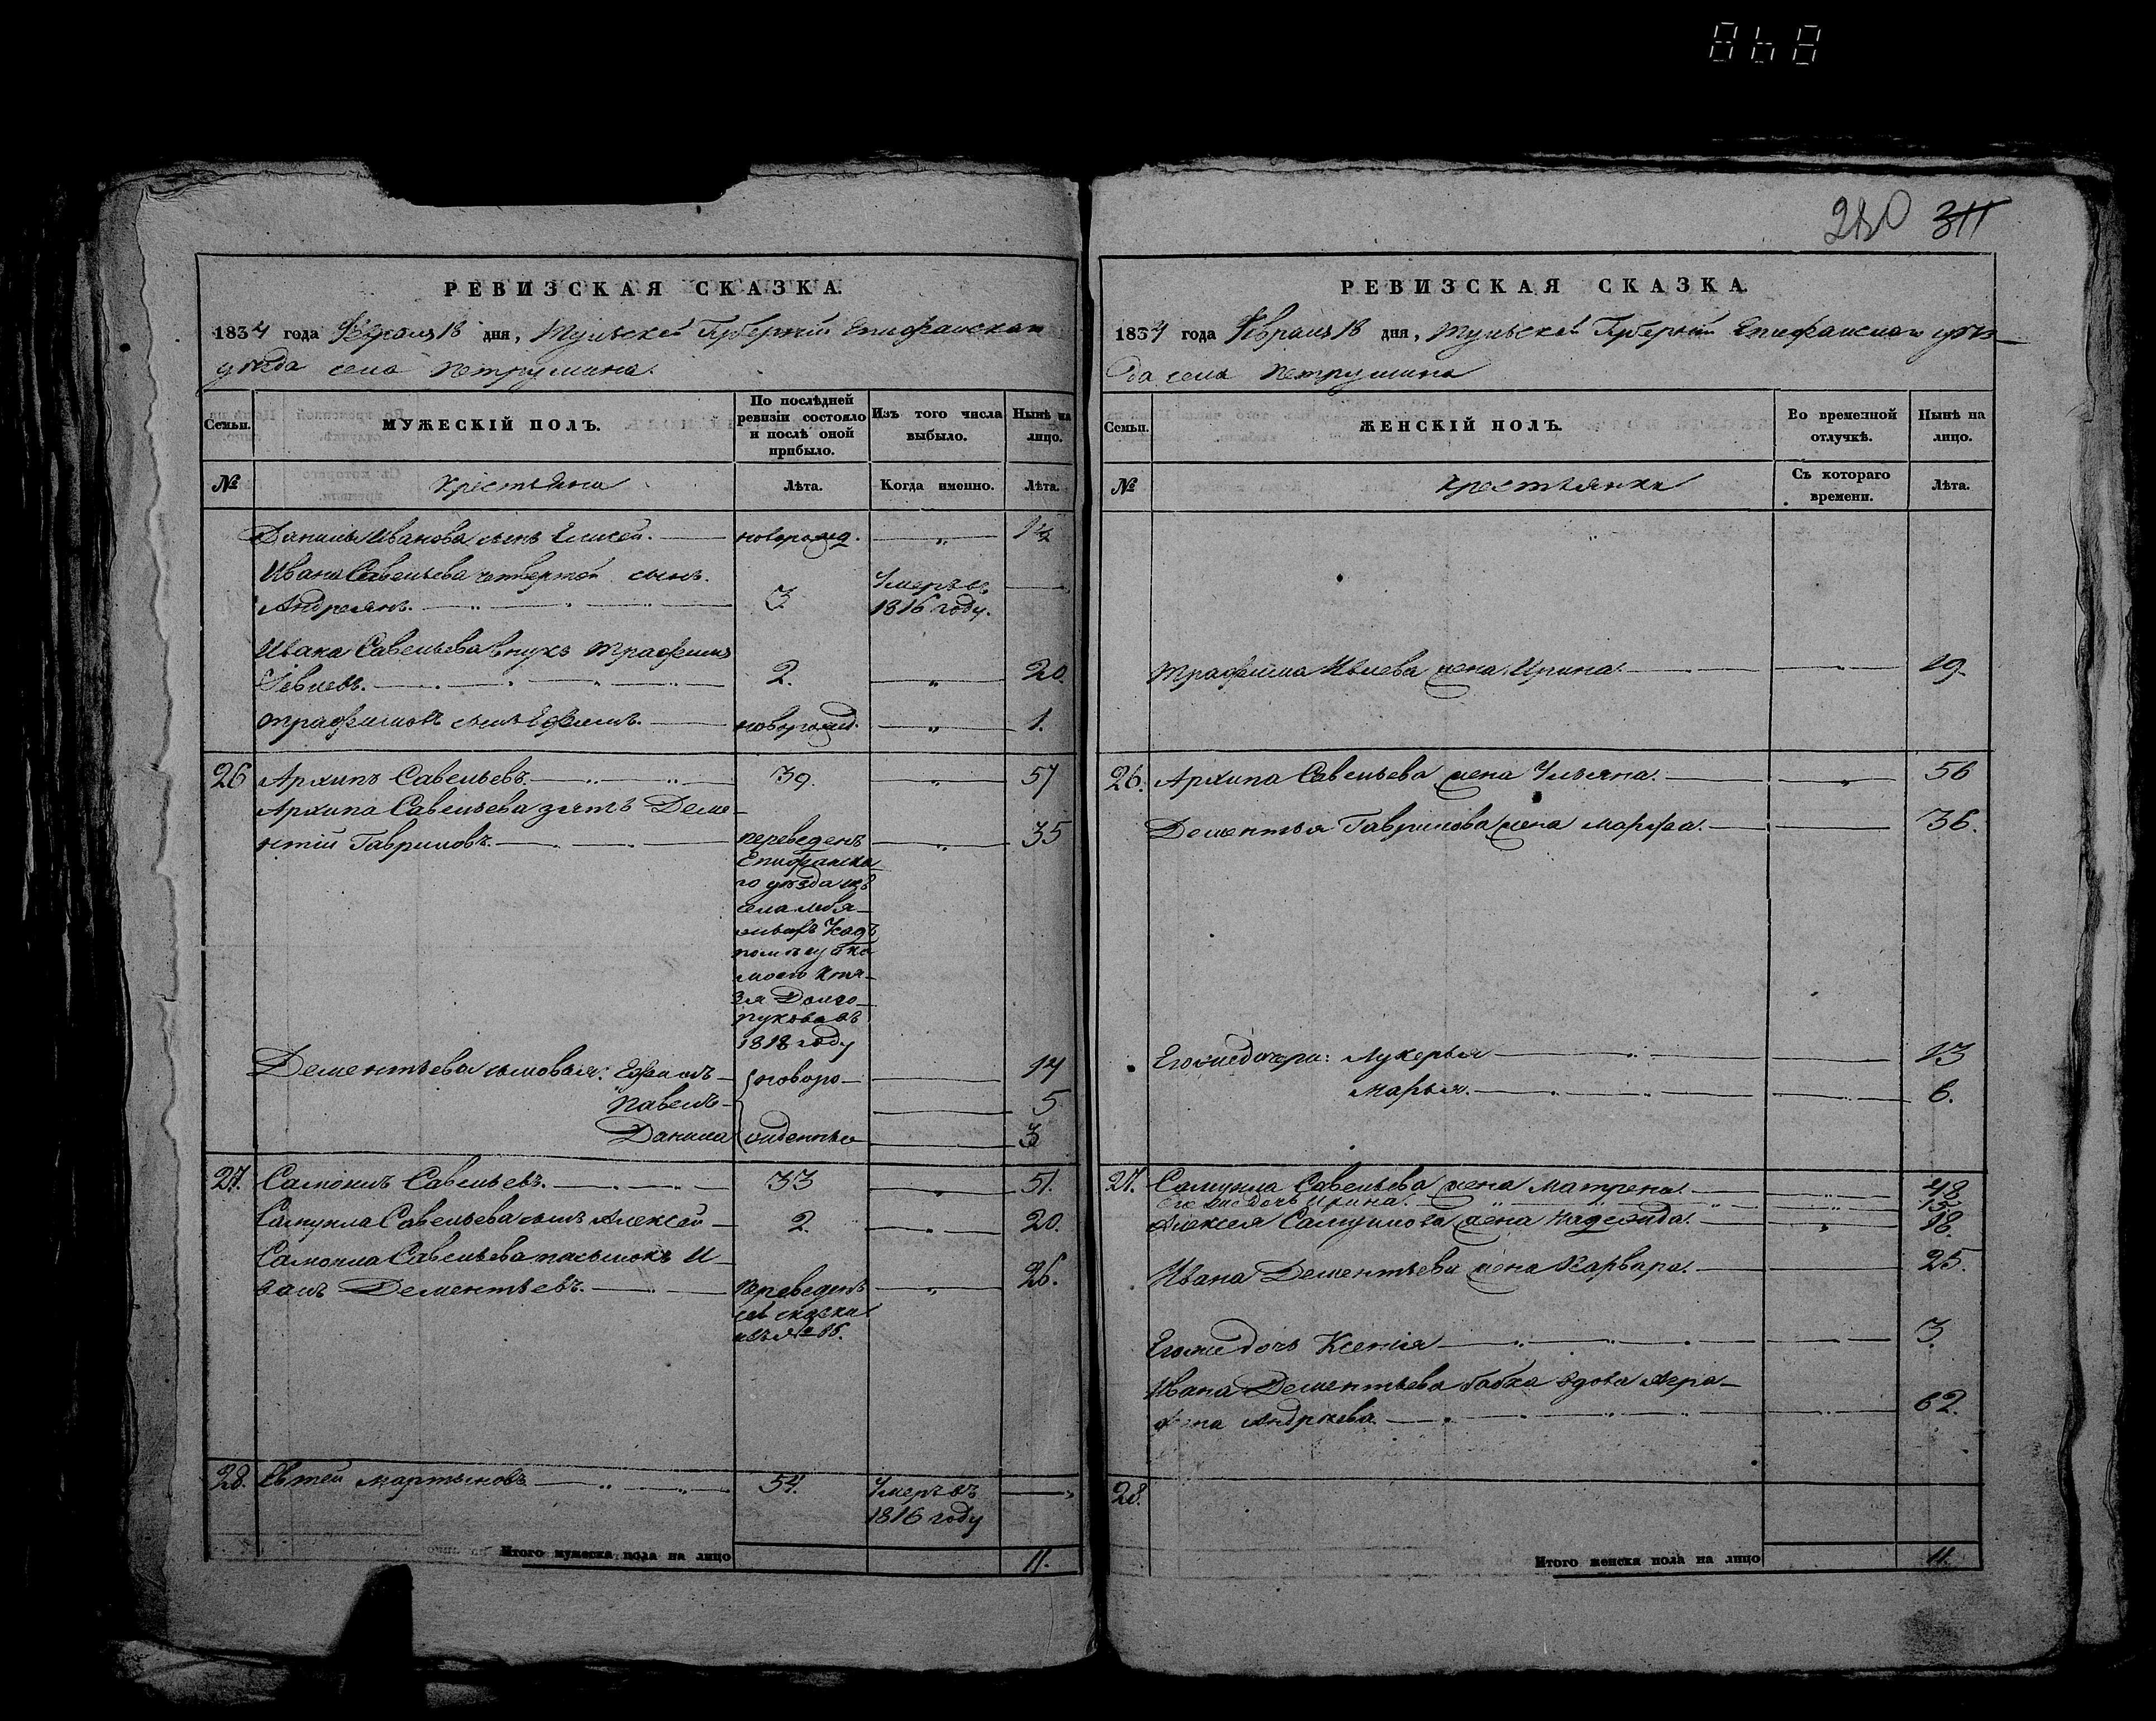 868
280 311
РЕВИЗСКАЯ СКАЗКА.
1834 года Февраля 18 дня, Тульской Губернии Епифанскаго
уѣзда села Петрушина.
Семьи.
МУЖЕСКІЙ ПОЛЪ.
По послѣдней
ревизіи состояло
и послѣ оной
прибыло.
Изъ того числа
выбыло.
Нынѣ на
лицо.
№
Крестьяна
Лѣта.
Когда именно.
Лѣта.
Данилы Иванова сынъ Елисей. новорожд. 1½
Ивана Савельева четвертой сынъ
Андреянъ. 3. Умеръ въ
1816 году.
Ивана Савельева внукъ Трафимъ
Иевлевъ. 2. 20.
Трафимовъ сынъ Ефимъ. новорожд. 1.
26 Архипъ Савельевъ 39. 57
Архипа Савельева зять Деме-
нтій Гавриловъ. переведенъ 35
Епифанска
го уѣзда изъ
села
1818 году
Дементьева сыновья: Ефимъ новоро- 14
Павелъ 5
Данила жденныя 3
27. Самойлъ Савельевъ. 33 51.
Самуила Савельева сынъ Алексей 2. 20.
Самойла Савельева пасынокъ И-
ванъ Дементьевъ. Переведенъ 26.
28. Евтей Мартыновъ 54. Умеръ въ
1816 году
Итого мужеска пола на лицо 11.
РЕВИЗСКАЯ СКАЗКА.
1834 года Февраля 18 дня, Тульской Губернии Епифанскаго уѣз-
да села Петрушина
Семьи.
ЖЕНСКІЙ ПОЛЪ.
Во временной
отлучкѣ.
Нынѣ на
лицо.
№
Крестьянки
Съ котораго
времени.
Лѣта.
Трафима Ивлева жена Ирина. 19.
26. Архипа Савельева жена Ульяна. 56
Дементья Гаврилова жена Марфа. 36.
Его же дочери: Лукерья 13
Марья. 6.
27. Самуила Савельева жена Матрена. 48
Его же дочь Ирина. 13.
Алексея Самуилова жена Надежда. 18.
Ивана Дементьева жена Варвара. 25.
Его же дочь Ксения 3.
Ивана Дементьева бабка вдова Агра-
фена Андреева. 62.
28.
Итого женска пола на лицо 11.